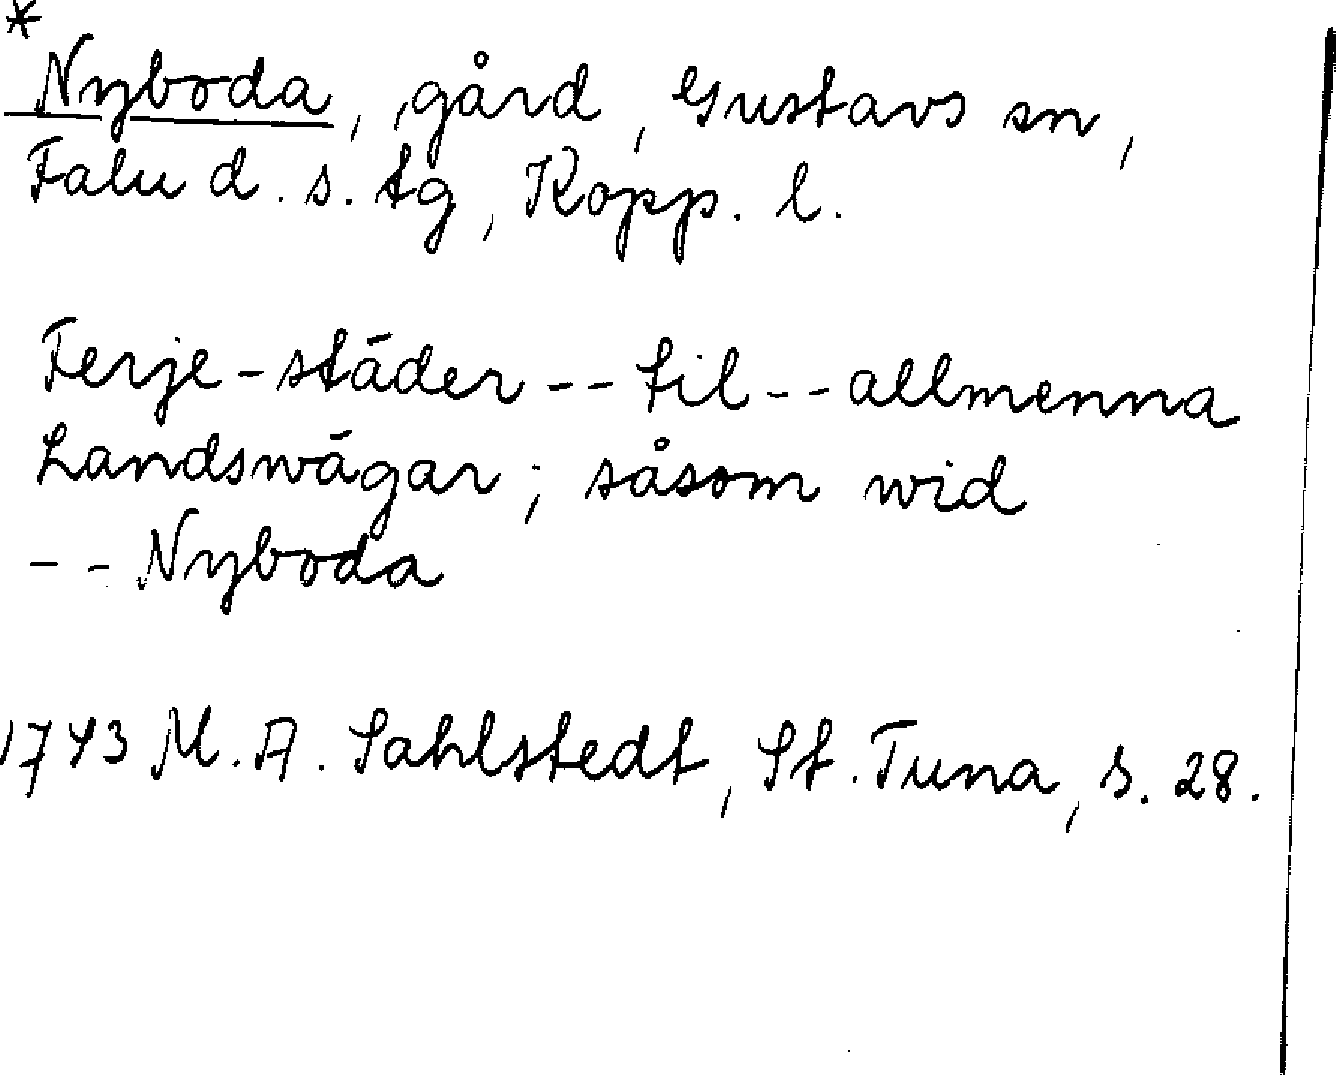 *
Nyboda, gård, Gustavs sn,
Falu d. s. tg, Kopp. l.
Ferje-städer -- til -- allmenna
Landswägar; såsom wid
-- Nyboda
1743 M. A. Sahlstedt, St. Tuna, s. 28.